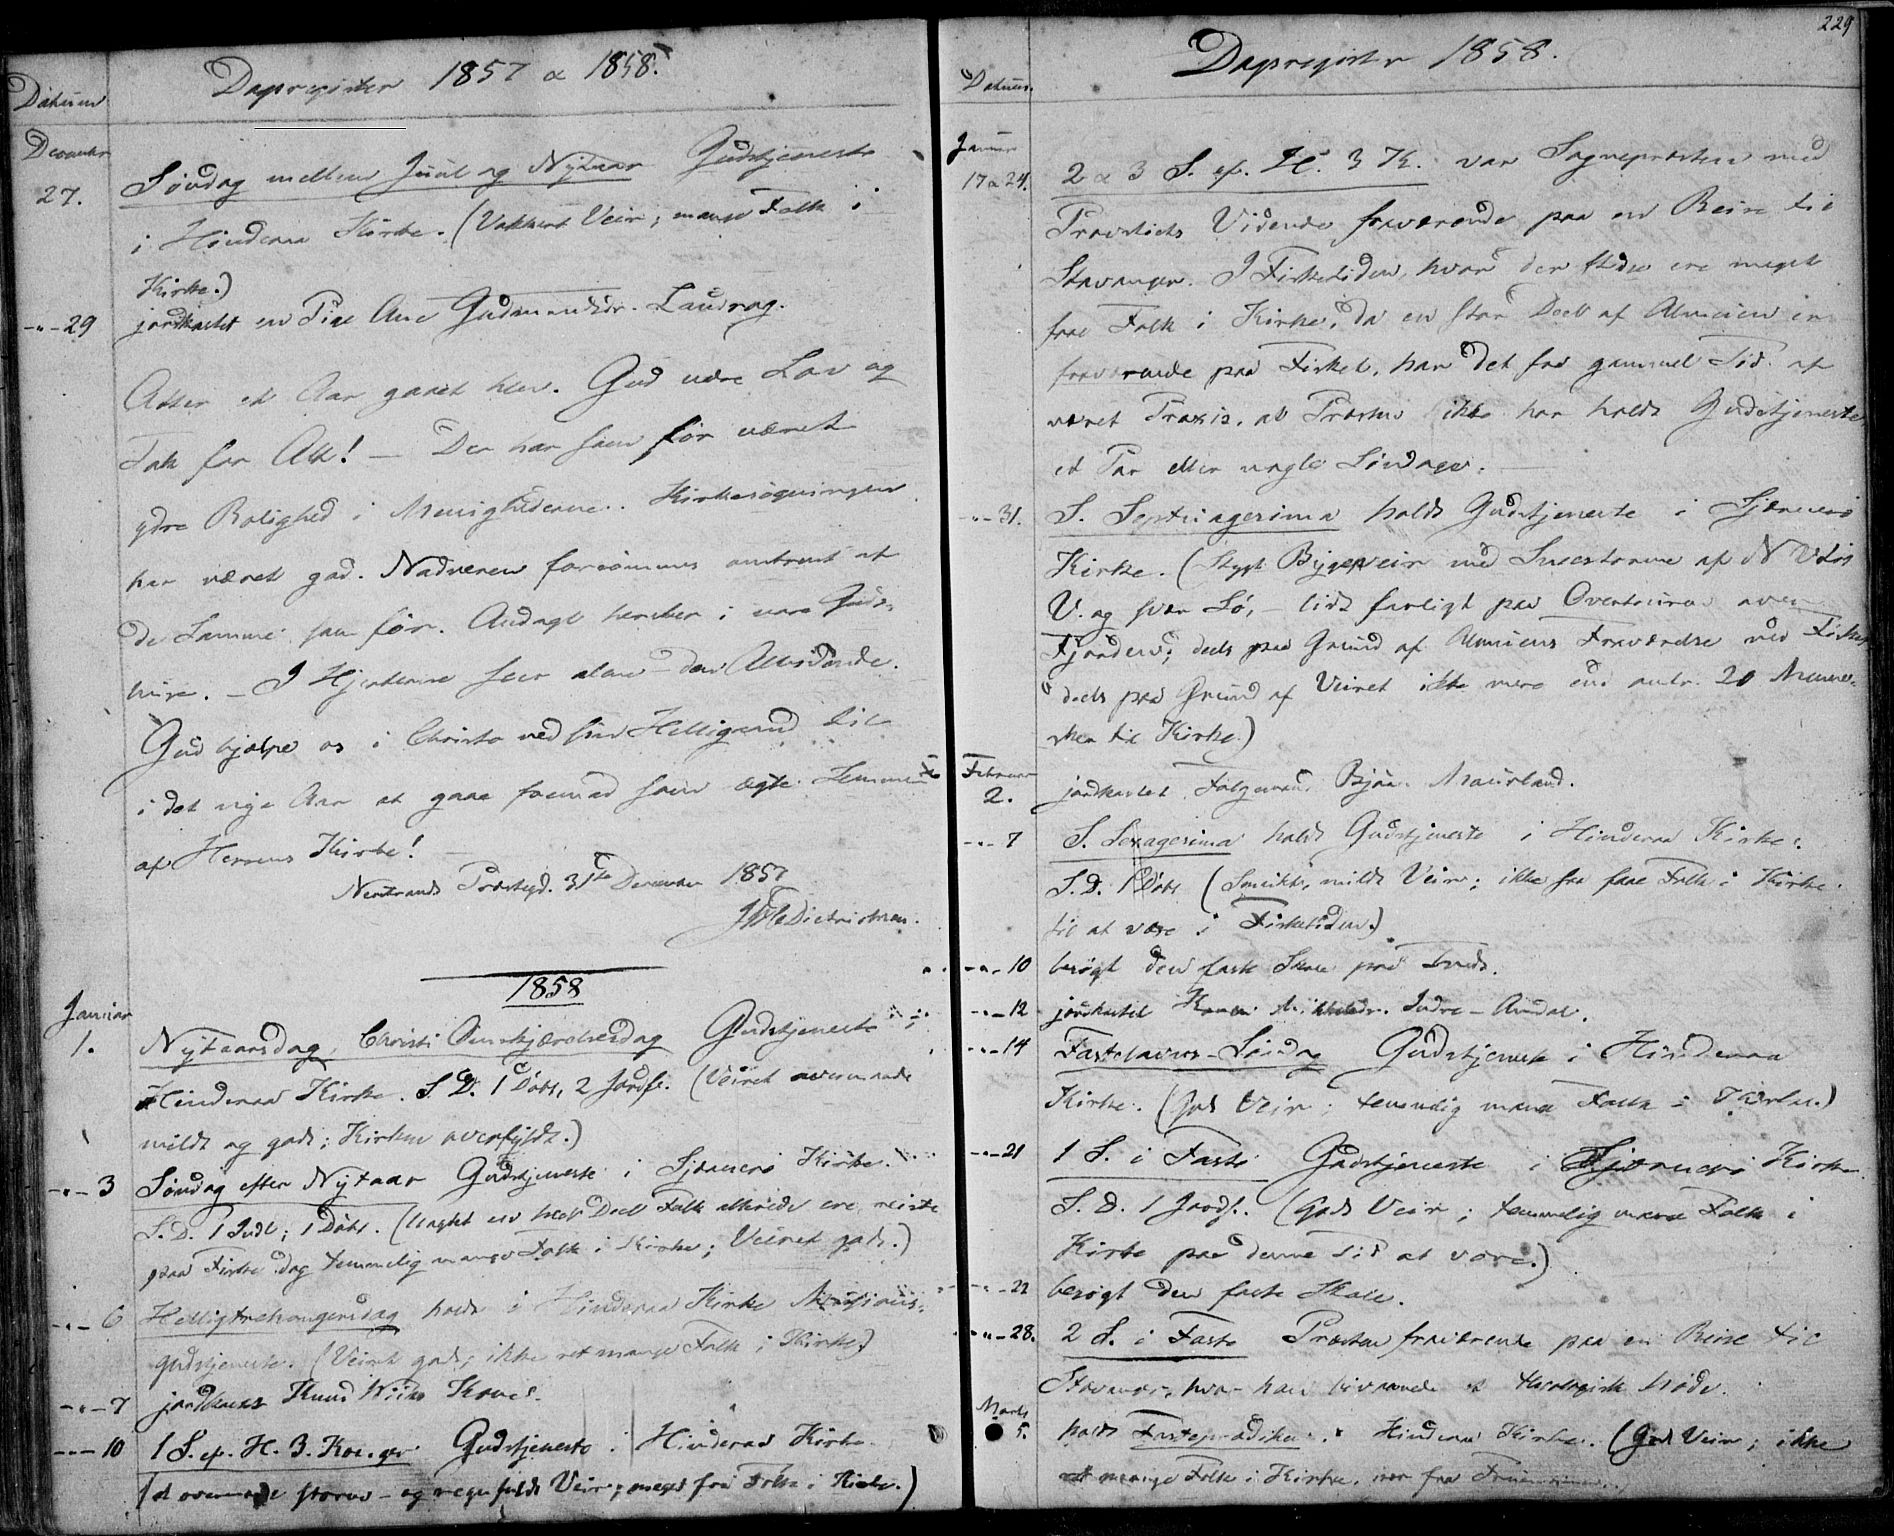 Dagregister 1857 a 1858.
Datum
December
27. Søndag mellem Juul og Nytaar Gudstjeneste
i Hinderaa Kirke. (Vakkert Veir; mange Folk i
Kirke.)
-"-29 jordkastet en Pige Ane Gudmundsdr. Landrag.
Atter et Aar gaaet hen. Gud være Lov og
Tak for Alt! — Der har som før været
ydre Rolighed i Menighederne. Kirkesøgningen
har været god. Nadveren forsømmes omtrent af
de Samme som før. Andagt hersker i vore Guds-
huse. — I Hjerterne seer alene den Alvidende.
Gud hjælpe os i Christo ved sin Helligaand til
i det nye Aar at gaae fremad som ægte Lemmer
af Herrens Kirke!
Nerstrands Præstegd. 31te December 1857
Dietrichson.
1858
Januar
1. Nytaarsdag, Christi Omskjærelsesdag Gudstjeneste i
Hinderaa Kirke. S. D. 1 Døbt, 2 Jordf. (Veiret overmaade
mildt og godt; Kirken overfyldt.)
-"-3 Søndag efter Nytaar Gudstjeneste i Sjærnerø Kirke.
S. D. 1 Indl; 1 Døbt. (Uagtet en heel Deel Folk allerede ere reiste
paa Fiske dog temmelig mange Folk i Kirke; Veiret godt.)
-"-6 Helligtrekongersdag holdt i Hinderaa Kirke Missions-
gudstjeneste. (Veiret godt; ikke ret mange Folk i Kirke)
-"-7 jordkastet Knud Kone.
-"-10 1 S. ef. H. 3. Kon.ger Gudstjeneste i Hinderaa Kirke.
(et overmaade storm- og regnfuldt Veir; meget faa Folk i Kirke.)
229
Dagregister 1858.
Datum.
Januar
17 a 24. 2 a 3 S. ef. H. 3 K. var Sognepræsten med
Provstiets Vidende fraværende paa en Reise til
Stavanger. I Fisketiden, hvor der stedse ere meget
faae Folk i Kirke, da en stor Deel af Almuen er
fraværende paa Fisket, har det fra gammel Tid af
været Praxis, at Præsten ikke har holdt Gudstjeneste
et Par eller nogle Søndage.
-"-31. S. Septuagesima holdt Gudstjeneste i Sjærnerø
Kirke. (Stygt Bygeveir med Sneestorme af N V til
V. og svær Sø, — lidt farligt paa Overturen over
Fjorden; deels paa Grund af Almuens Fraværelse ved Fisket
deels paa Grund af Veiret ikke mere end omtr. 20 Mennes-
sker til Kirke.)
Februar
2. jordkastet Folgemand Bjørn Maurland.
-"-7 S. Sexagesima holdt Gudstjeneste i Hinderaa Kirke.
S. D. 1 Døbt (Smukt, mildt Veir; ikke saa faae Folk i Kirke
til at være i Fisketiden.)
-"-10 besøgt den faste Skole paa Tveds.
-"-12 jordkastet Indre-Amdal.
-"-14 Fastelavns-Søndag Gudstjeneste i Hinderaa
Kirke. (Godt Veir; temmelig mange Folk i Kirke.)
-"-21 1 S. i Faste Gudstjeneste i Sjærnerø Kirke
S. D. 1 Jordf. (Godt Veir; temmelig mange Folk i
Kirke paa denne Tid at være.)
-"-22 besøgt den faste Skole.
-"-28. 2 S. i Faste Præsten fraværende paa en Reise til
Stavanger, hvor han bivaanede et theologisk Møde.
Marts
5. holdt Fasteprædiken i Hinderaa Kirke. (Godt Veir; ikke
ret mange Folk i Kirke,